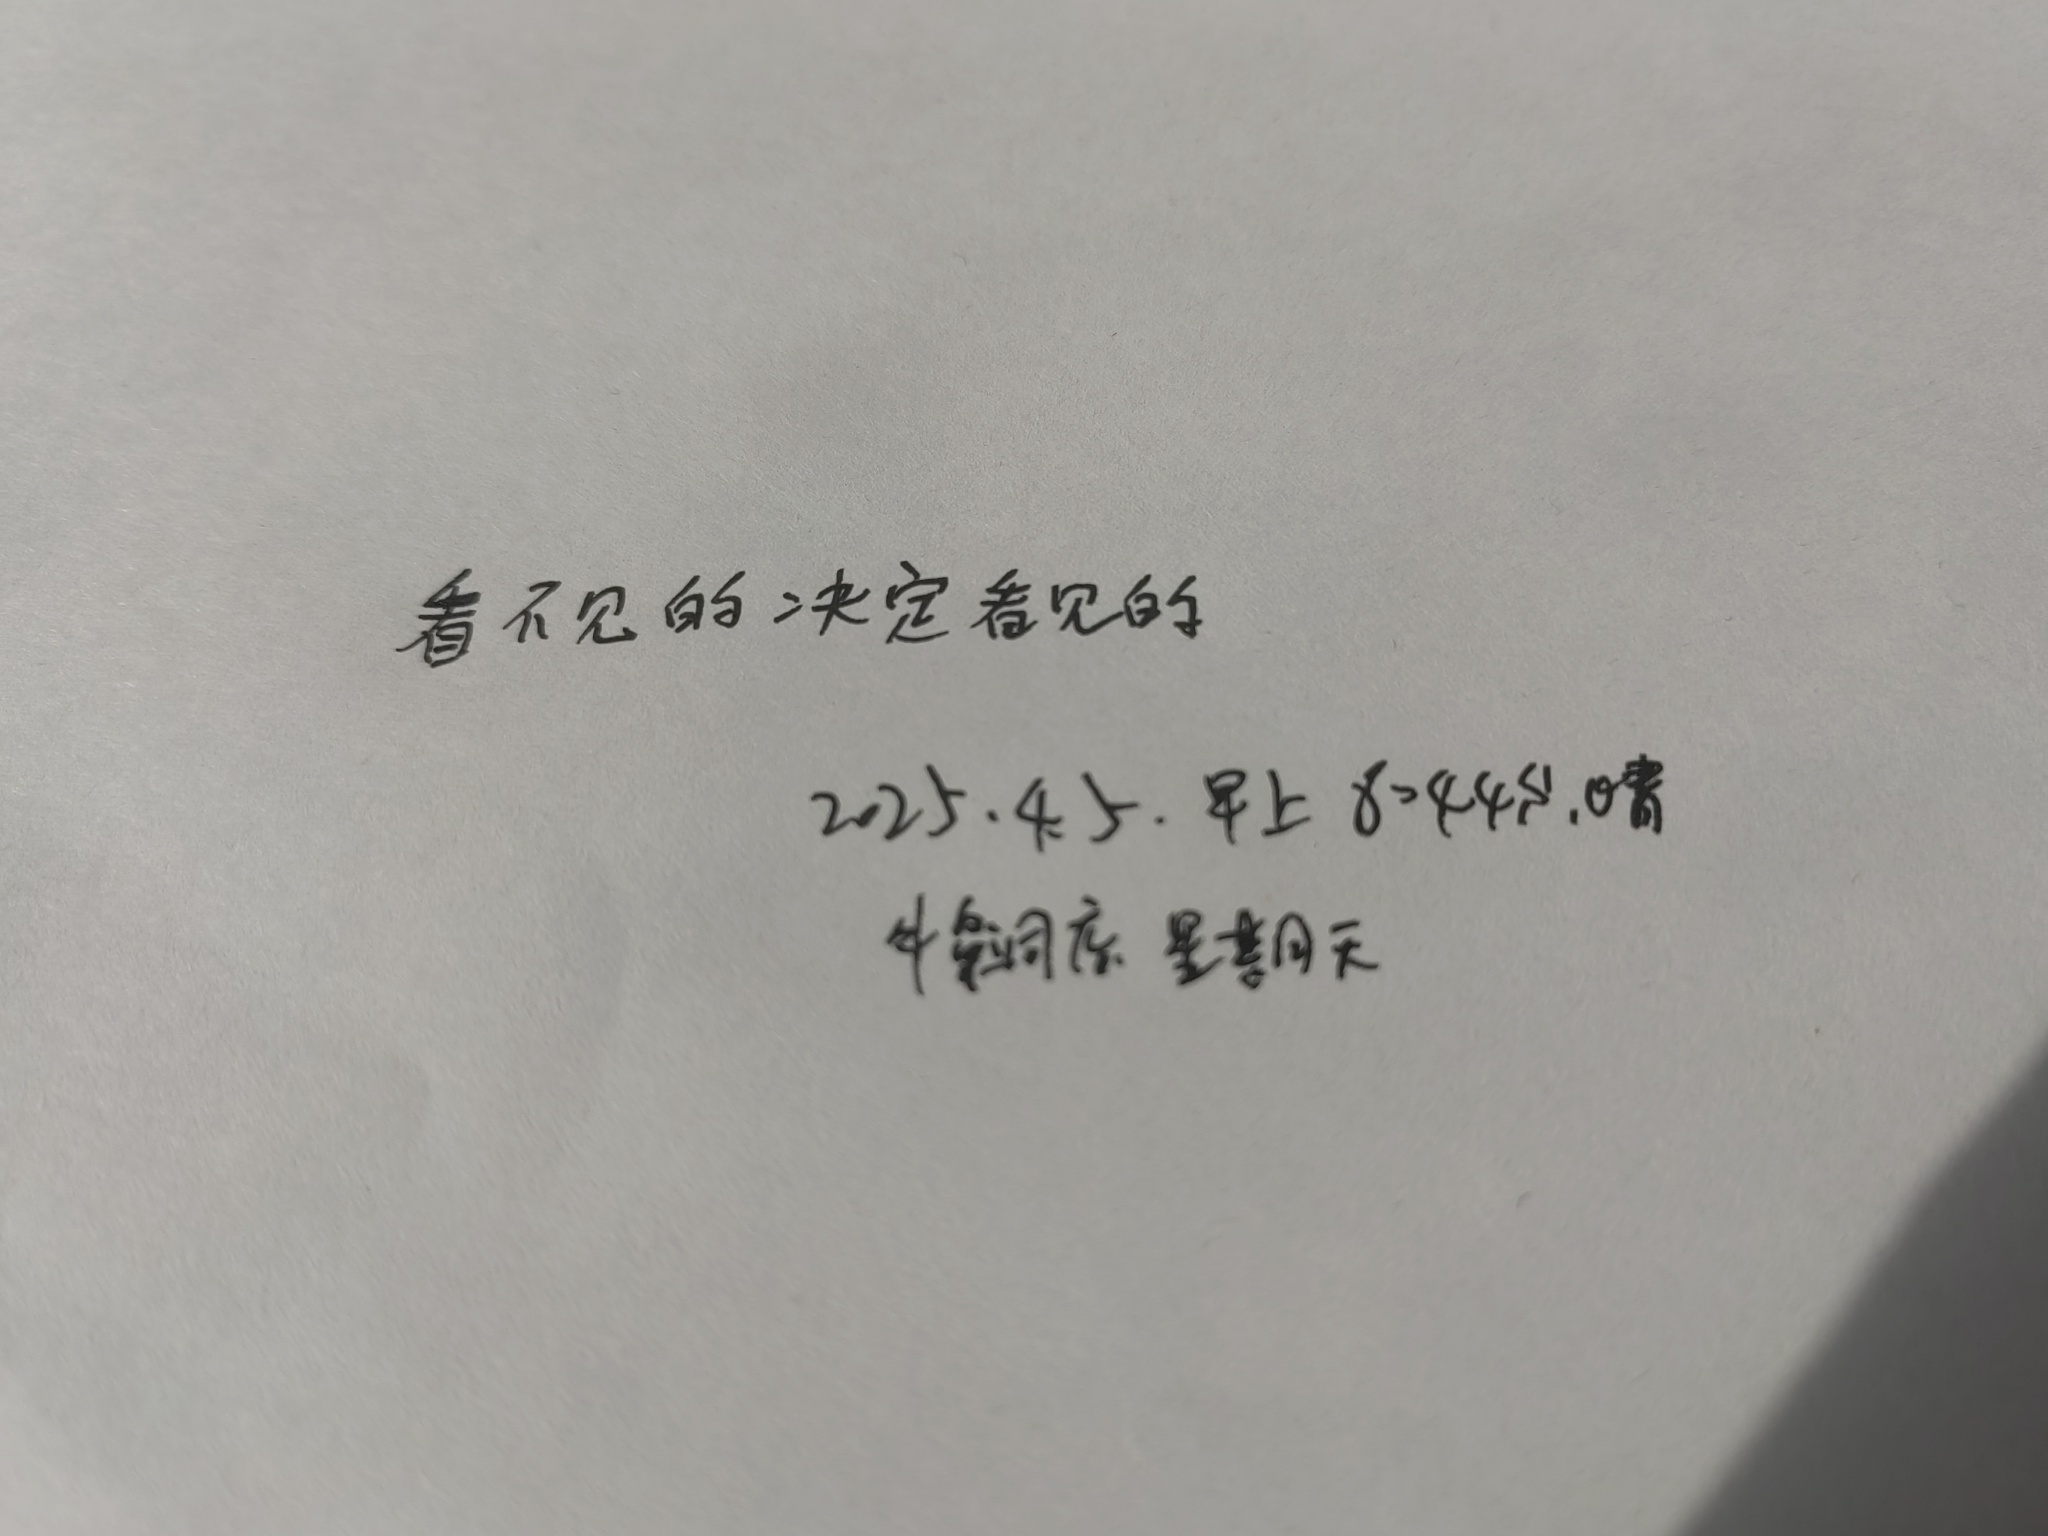 看不见的决定看见的
2025.4.5.早上8:44分.晴
星期天